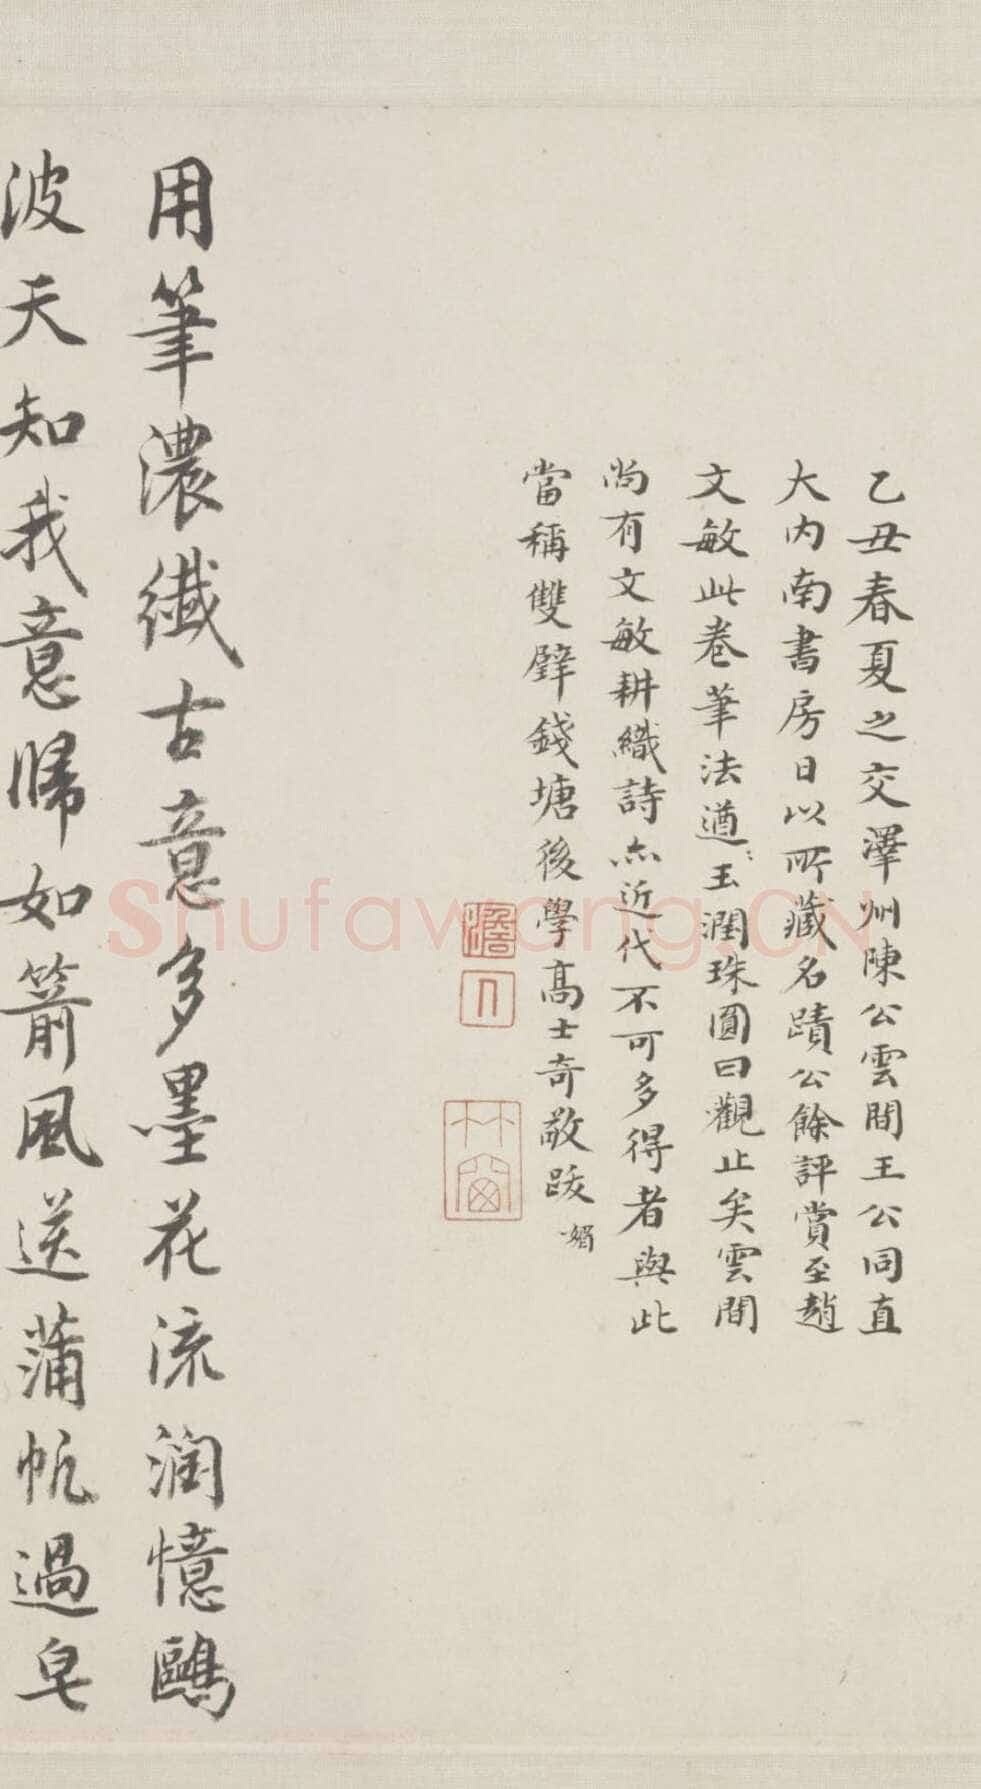 乙丑春夏之交澤州陳公雲間王公同直
大内南書房日以所藏名蹟公餘評賞至趙
文敏此卷筆法遒〻玉潤珠圓曰觀止矣雲間
尚有文敏耕織詩亦近代不可多得者與此
當稱雙璧錢塘後學高士奇敬跋 媚
澹人
竹窗
用筆濃纖古意多墨花流潤憶鷗
波天知我意歸如箭風送蒲帆過皂
shufawang.CN